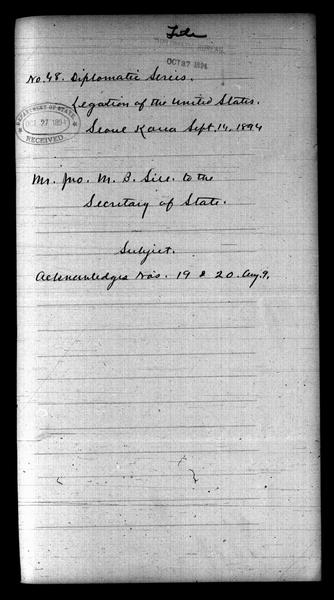 DIPLOMATIC BUREAU
OCT 27 1894
No. 48. Diplomatic Series.
Legation of the United States.
Seoul Korea Sept. 14, 1894
DEPARTMENT OF STATE
OCT 27 1894
RECEIVED
Mr. Jno. M. B. Sill. to the
Secretary of State.
Subject.
Acknowledges Nos. 19 & 20. Aug. 9.